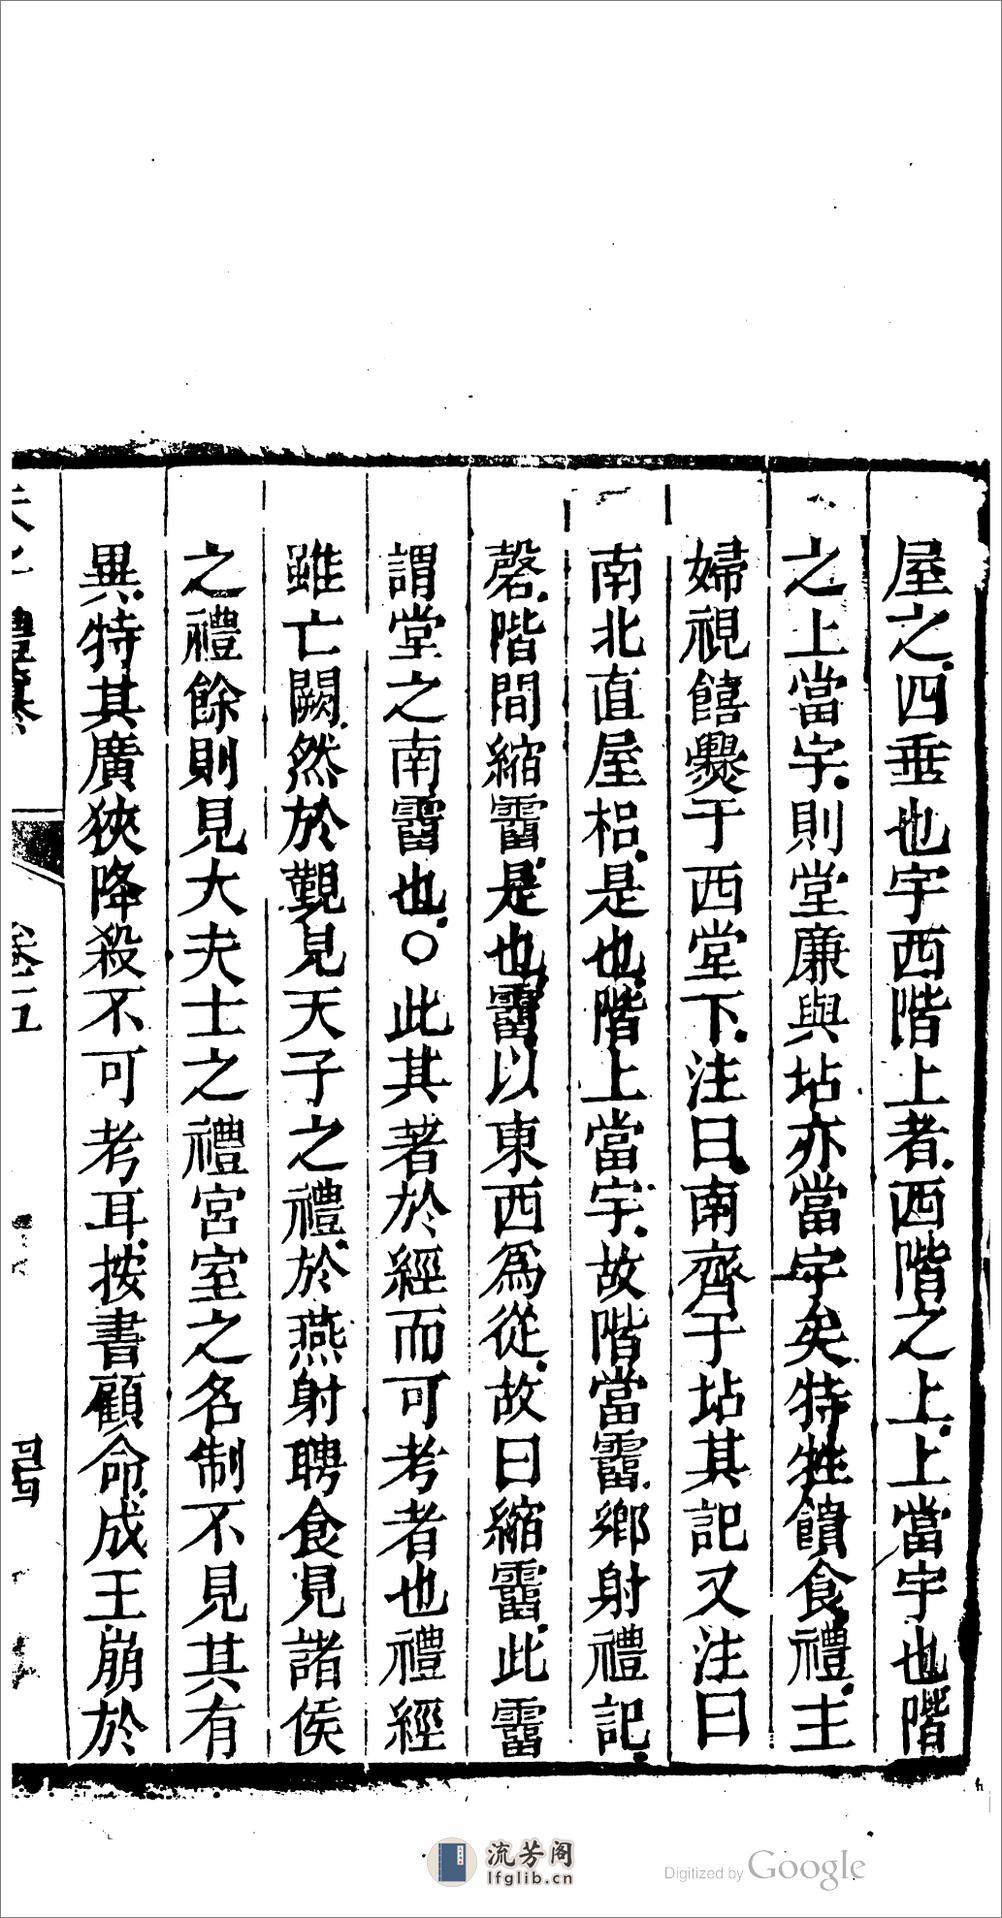 屋之四垂也宇西階上者西階之上上當宇也階
之上當宇則堂廉與坫亦當宇矣特牲饋食禮主
婦視饎爨于西堂下注曰南齊于坫其記又注曰
南北直屋梠是也階上當宇故階當霤鄉射禮記
磬階間縮霤是也霤以東西為從故曰縮霤此霤
謂堂之南霤也○此其著於經而可考者也禮經
雖亡闕然於覲見天子之禮於燕射聘食見諸侯
之禮餘則見大夫士之禮宮室之名制不見其有
異特其廣狹降殺不可考耳按書顧命成王崩於
流芳阁
lfglib.cn
Digitized by Google